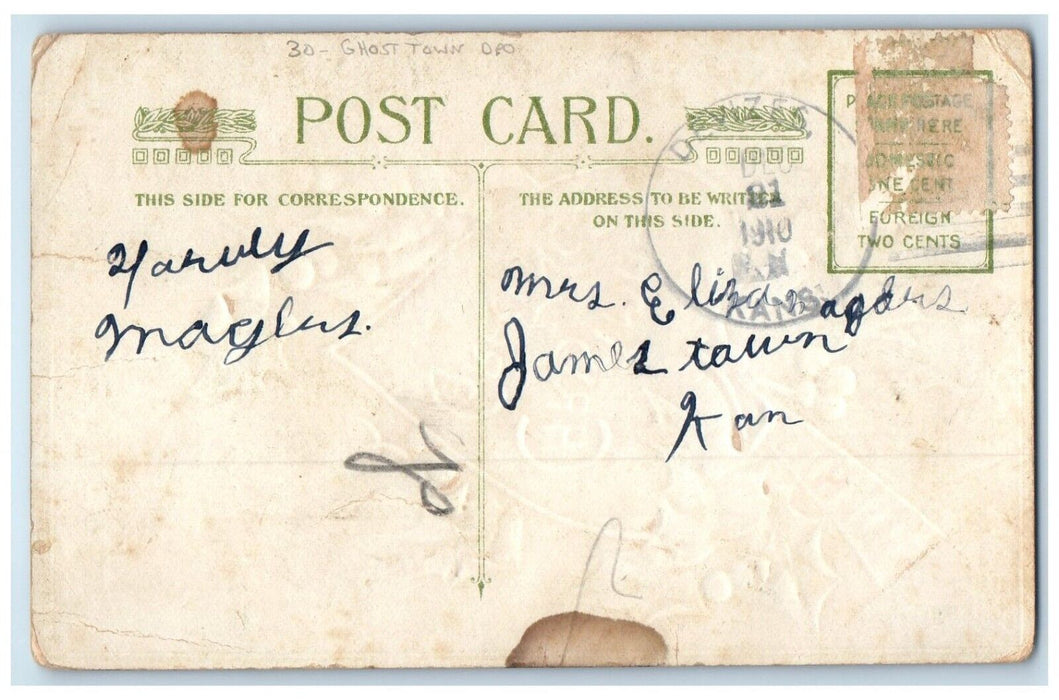 30- GHOST TOWN DPO
POST CARD.
THIS SIDE FOR CORRESPONDENCE.
THE ADDRESS TO BE WRITTEN
ON THIS SIDE.
DEVIZES
DEC
21
1910
KANS.
PLACE POSTAGE
STAMP HERE
DOMESTIC
ONE CENT
FOREIGN
TWO CENTS
Harvly
Maglrs.
Mrs. Eliza
Jamestown
Kan